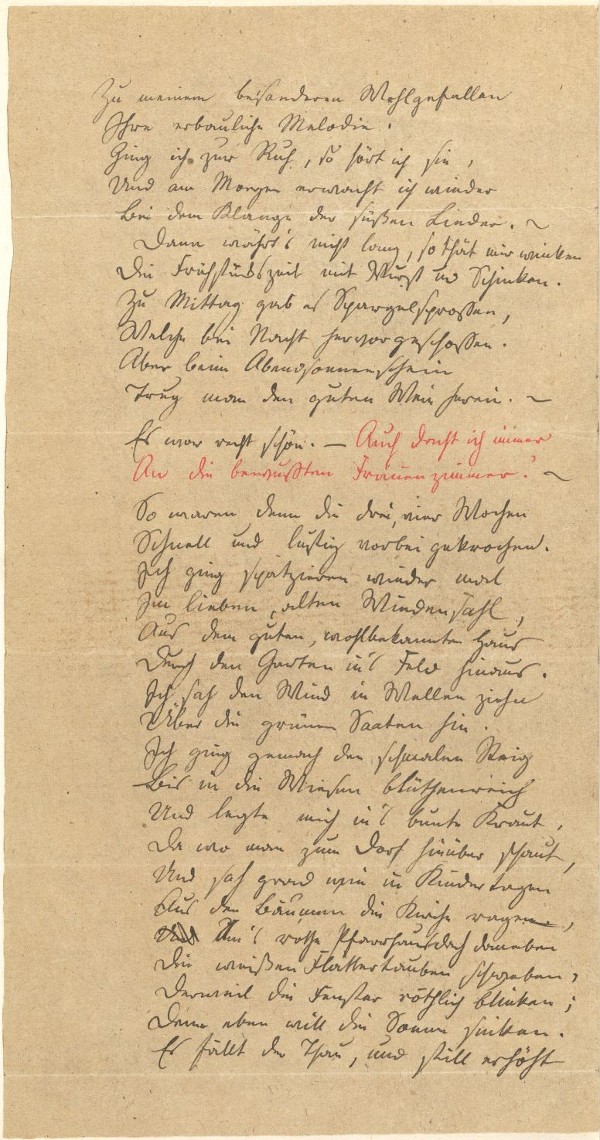 Zu meinem besonderen Wohlgefallen
Ihre erbauliche Melodie.
Ging ich zur Ruh, so hört ich sie,
Und am Morgen erwacht ich wieder
Bei dem Klange der süßen Lieder. ~
Dann währt's nicht lang, so thät mir winken
Die Frühstückszeit mit Wurst und Schinken.
Zu Mittag gab es Spargelsprossen,
Welche bei Nacht hervorgeschossen.
Aber beim Abendsonnenschein
Trug man den guten Wein herein. ~
Es war recht schön. — Auch dacht ich immer
An die bewußten Frauenzimmer! ~
So waren denn die drei, vier Wochen
Schnell und lustig vorbei gekrochen.
Ich ging spatzieren wieder mal
Im lieben, alten Wiedensahl,
Aus dem guten, wohlbekannten Haus
Durch den Garten in's Feld hinaus.
Ich sah den Wind in Wellen ziehn
Über die grünen Saaten hin.
Ich ging gemach den schmalen Steig
Bis in die Wiesen blüthenreich
Und legte mich in's bunte Kraut,
Da wo man zum Dorf hinüber schaut,
Und sah grad wie in Kindertagen
Aus den Bäumen die Kirche ragen,
Um's rothe Pfarrhausdach daneben
Die weißen Flattertauben schweben,
Derweil die Fenster röthlich blinken;
Denn eben will die Sonne sinken.
Es fällt der Thau, und still erhöht